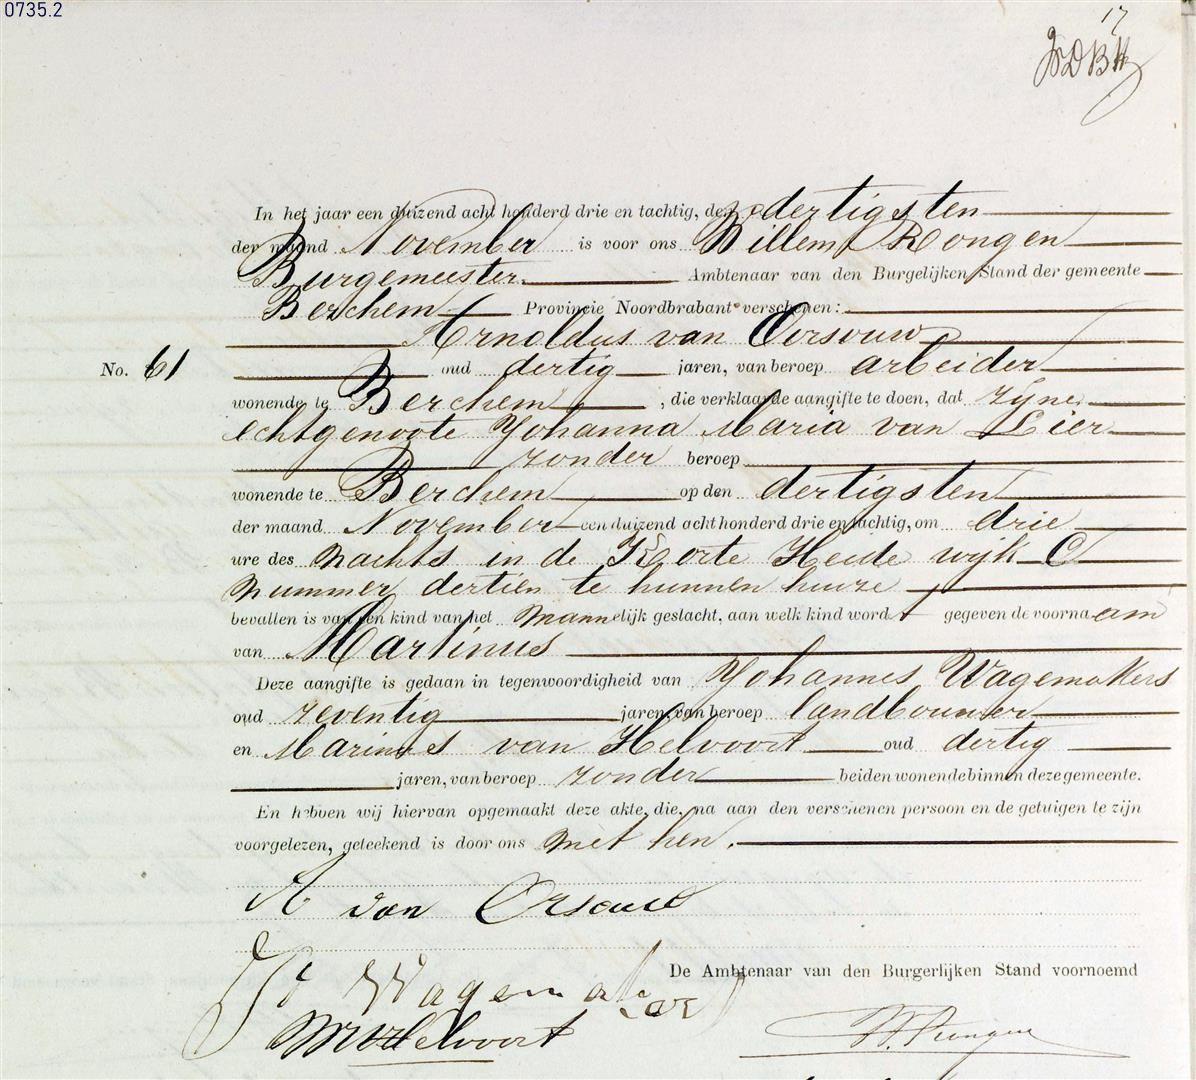 0735.2
17
In het jaar een duizend acht honderd drie en tachtig, den dertigsten
der maand November is voor ons Willem Rongen
Burgemeester Ambtenaar van den Burgelijken Stand der gemeente
Berchem Provincie Noordbrabant verschenen:
Arnoldus van Orsouw
No. 61 oud dertig jaren, van beroep arbeider
wonende te Berchem, die verklaarde aangifte te doen, dat zijne
echtgenoote Johanna Maria van Lier
zonder beroep
wonende te Berchem op den dertigsten
der maand November een duizend acht honderd drie en tachtig, om drie
ure des nachts in de Korte Heide wijk C
nummer dertien te hunnen huize
bevallen is van een kind van het mannelijk geslacht, aan welk kind word gegeven de voornaam
van Martinus
Deze aangifte is gedaan in tegenwoordigheid van Johannes Wagemakers
oud zeventig jaren, van beroep landbouwer
en Marinus van Helvoort oud dertig
jaren, van beroep zonder beiden wonende binnen deze gemeente.
En hebben wij hiervan opgemaakt deze akte, die, na aan den verschenen persoon en de getuigen te zijn
voorgelezen, geteekend is door ons met hen.
A van Orsouw
De Ambtenaar van den Burgerlijken Stand voornoemd
Wagemakers
MvHelvoort
W. Rongen